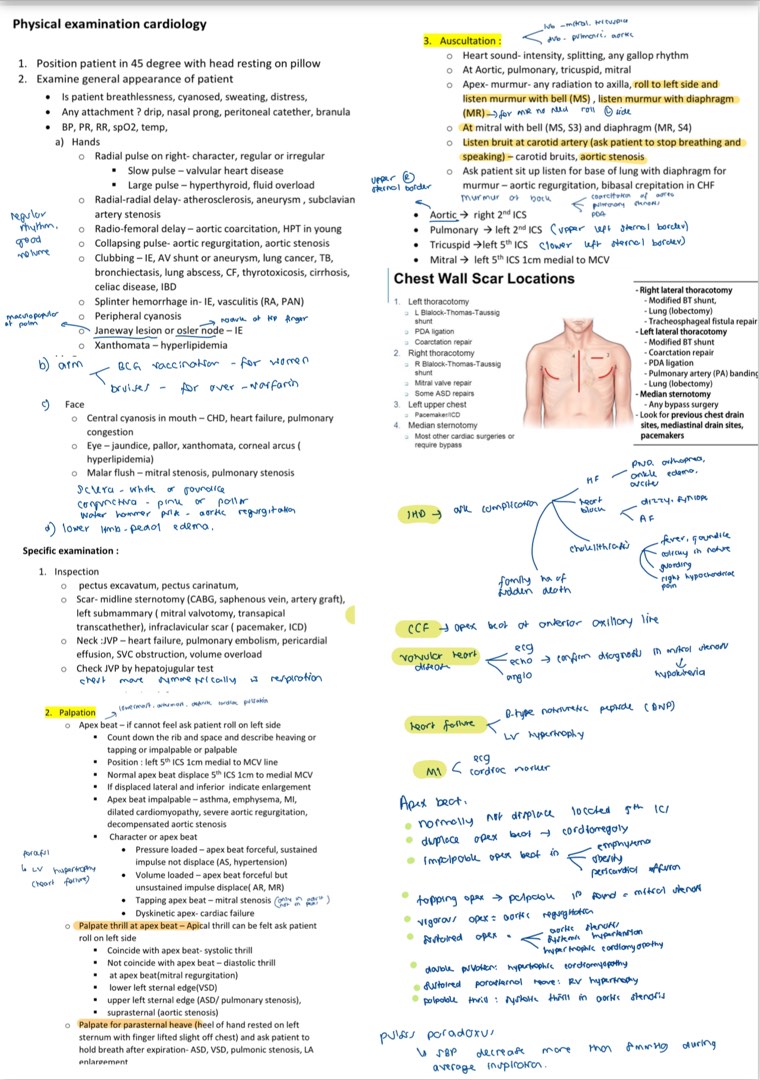 Physical examination cardiology
1. Position patient in 45 degree with head resting on pillow
2. Examine general appearance of patient
• Is patient breathlessness, cyanosed, sweating, distress,
• Any attachment ? drip, nasal prong, peritoneal catether, branula
• BP, PR, RR, spO2, temp,
a) Hands
o Radial pulse on right- character, regular or irregular
▪ Slow pulse – valvular heart disease
▪ Large pulse – hyperthyroid, fluid overload
o Radial-radial delay- atherosclerosis, aneurysm , subclavian
artery stenosis
o Radio-femoral delay – aortic coarcitation, HPT in young
regular
rhythm,
good
volume
o Collapsing pulse- aortic regurgitation, aortic stenosis
o Clubbing – IE, AV shunt or aneurysm, lung cancer, TB,
bronchiectasis, lung abscess, CF, thyrotoxicosis, cirrhosis,
celiac disease, IBD
o Splinter hemorrhage in- IE, vasculitis (RA, PAN)
o Peripheral cyanosis
o Janeway lesion or osler node – IE
o Xanthomata – hyperlipidemia
b) arm
BCG vaccination - for women
bruises - for over-warfarin
c) Face
o Central cyanosis in mouth – CHD, heart failure, pulmonary
congestion
o Eye – jaundice, pallor, xanthomata, corneal arcus (
hyperlipidemia)
o Malar flush – mitral stenosis, pulmonary stenosis
sclera - white or jaundice
conjunctiva - pink or pallor
water hammer pulse - aortic regurgitation
d) lower limb - pedal edema.
Specific examination :
1. Inspection
o pectus excavatum, pectus carinatum,
o Scar- midline sternotomy (CABG, saphenous vein, artery graft),
left submammary ( mitral valvotomy, transapical
transcathether), infraclavicular scar ( pacemaker, ICD)
o Neck :JVP – heart failure, pulmonary embolism, pericardial
effusion, SVC obstruction, volume overload
o Check JVP by hepatojugular test
chest move symmetrically is respiration
2. Palpation
o Apex beat – if cannot feel ask patient roll on left side
▪ Count down the rib and space and describe heaving or
tapping or impalpable or palpable
▪ Position : left 5th ICS 1cm medial to MCV line
▪ Normal apex beat displace 5th ICS 1cm to medial MCV
▪ If displaced lateral and inferior indicate enlargement
▪ Apex beat impalpable – asthma, emphysema, MI,
dilated cardiomyopathy, severe aortic regurgitation,
decompensated aortic stenosis
▪ Character or apex beat
• Pressure loaded – apex beat forceful, sustained
impulse not displace (AS, hypertension)
• Volume loaded – apex beat forceful but
unsustained impulse displace( AR, MR)
• Tapping apex beat – mitral stenosis
• Dyskinetic apex- cardiac failure
LV hypertrophy
(heart failure)
o Palpate thrill at apex beat – Apical thrill can be felt ask patient
roll on left side
▪ Coincide with apex beat- systolic thrill
▪ Not coincide with apex beat – diastolic thrill
▪ at apex beat(mitral regurgitation)
▪ lower left sternal edge(VSD)
▪ upper left sternal edge (ASD/ pulmonary stenosis),
▪ suprasternal (aortic stenosis)
o Palpate for parasternal heave (heel of hand rested on left
sternum with finger lifted slight off chest) and ask patient to
hold breath after expiration- ASD, VSD, pulmonic stenosis, LA
enlargement
lub - mitral, tricuspid
dub - pulmonari, aortic
3. Auscultation :
o Heart sound- intensity, splitting, any gallop rhythm
o At Aortic, pulmonary, tricuspid, mitral
o Apex- murmur- any radiation to axilla, roll to left side and
listen murmur with bell (MS) , listen murmur with diaphragm
(MR) → for MR no need roll Ⓛ side
o At mitral with bell (MS, S3) and diaphragm (MR, S4)
o Listen bruit at carotid artery (ask patient to stop breathing and
speaking) – carotid bruits, aortic stenosis
o Ask patient sit up listen for base of lung with diaphragm for
murmur – aortic regurgitation, bibasal crepitation in CHF
murmur at back
coarcitation of aorta
pulmonary stenosis
PDA
upper Ⓡ
sternal border
• Aortic → right 2nd ICS
• Pulmonary → left 2nd ICS (upper left sternal border)
• Tricuspid →left 5th ICS (lower left sternal border)
• Mitral → left 5th ICS 1cm medial to MCV
Chest Wall Scar Locations
1. Left thoracotomy
o L Blalock-Thomas-Taussig
shunt
o PDA ligation
o Coarctation repair
2. Right thoracotomy
o R Blalock-Thomas-Taussig
shunt
o Mitral valve repair
o Some ASD repairs
3. Left upper chest
o Pacemaker/ICD
4. Median sternotomy
o Most other cardiac surgeries or
require bypass
- Right lateral thoracotomy
- Modified BT shunt,
- Lung (lobectomy)
- Tracheosphageal fistula repair
- Left lateral thoracotomy
- Modified BT shunt
- Coarctation repair
- PDA ligation
- Pulmonary artery (PA) banding
- Lung (lobectomy)
- Median sternotomy
- Any bypass surgery
- Look for previous chest drain
sites, mediastinal drain sites,
pacemakers
IHD → ask complication
HF
PND, orthopnea,
ankle edema,
ascites
heart
block
dizzy, syncope
AF
cholelithiasis
fever, jaundice
colicky in nature
guarding
right hypochondriac
pain
family hx of
sudden death
CCF → apex beat at anterior axillary line
valvular heart
disease
ecg
echo → confirm diagnosis in mitral stenosis
angio
heart failure
B-type natriuretic peptide (BNP)
LV hypertrophy
MI
ecg
cardiac marker
Apex beat:
normally not displace located 5th ICS
displace apex beat → cardiomegaly
impalpable apex beat in
emphysema
obesity
pericardial effusion
tapping apex → palpable 1st sound = mitral stenosis
vigorous apex = aortic regurgitation
sustained apex =
aortic stenosis
systemic hypertension
hypertrophic cardiomyopathy
double pulsation: hypertrophic cardiomyopathy
sustained parasternal heave: RV hypertrophy
palpable thrill : systolic thrill in aortic stenosis
pulsus paradoxus
↳ SBP decrease more than 8mmHg during
average inspiration.